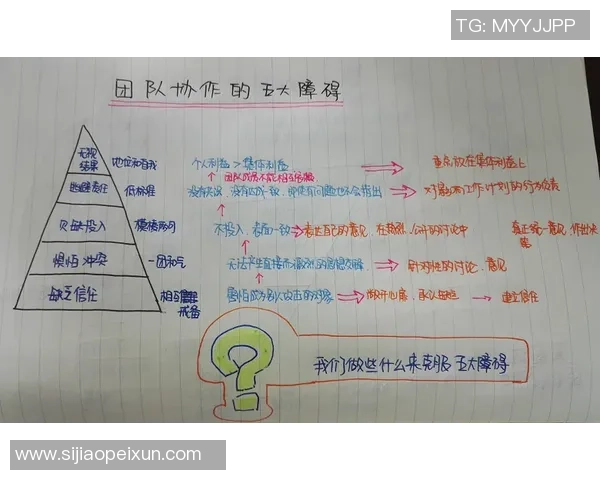 TG: MYYJJPP
团队协作的五大障碍
无视结果 地位和自我 个人利益 > 集体利益 重点放在集体利益上
团队成员不能相互
逃避责任 低标准 没有 没有达成一致，即使有问题也不会指出 对 工作计划的行为负责
欠缺投入 模棱两可 不投入，表面一致 表达自己的意见，在 公开的讨论中 真正统一意见，作出决策
惧怕冲突 一团和气 无法产生直接而激烈的思想交锋 针对性的讨论，意见
缺乏信任 相互 戒备 害怕成为别人攻击的对象 敞开心扉，承认 建立信任
我们做些什么来克服五大障碍
www.sijiaopeixun.com